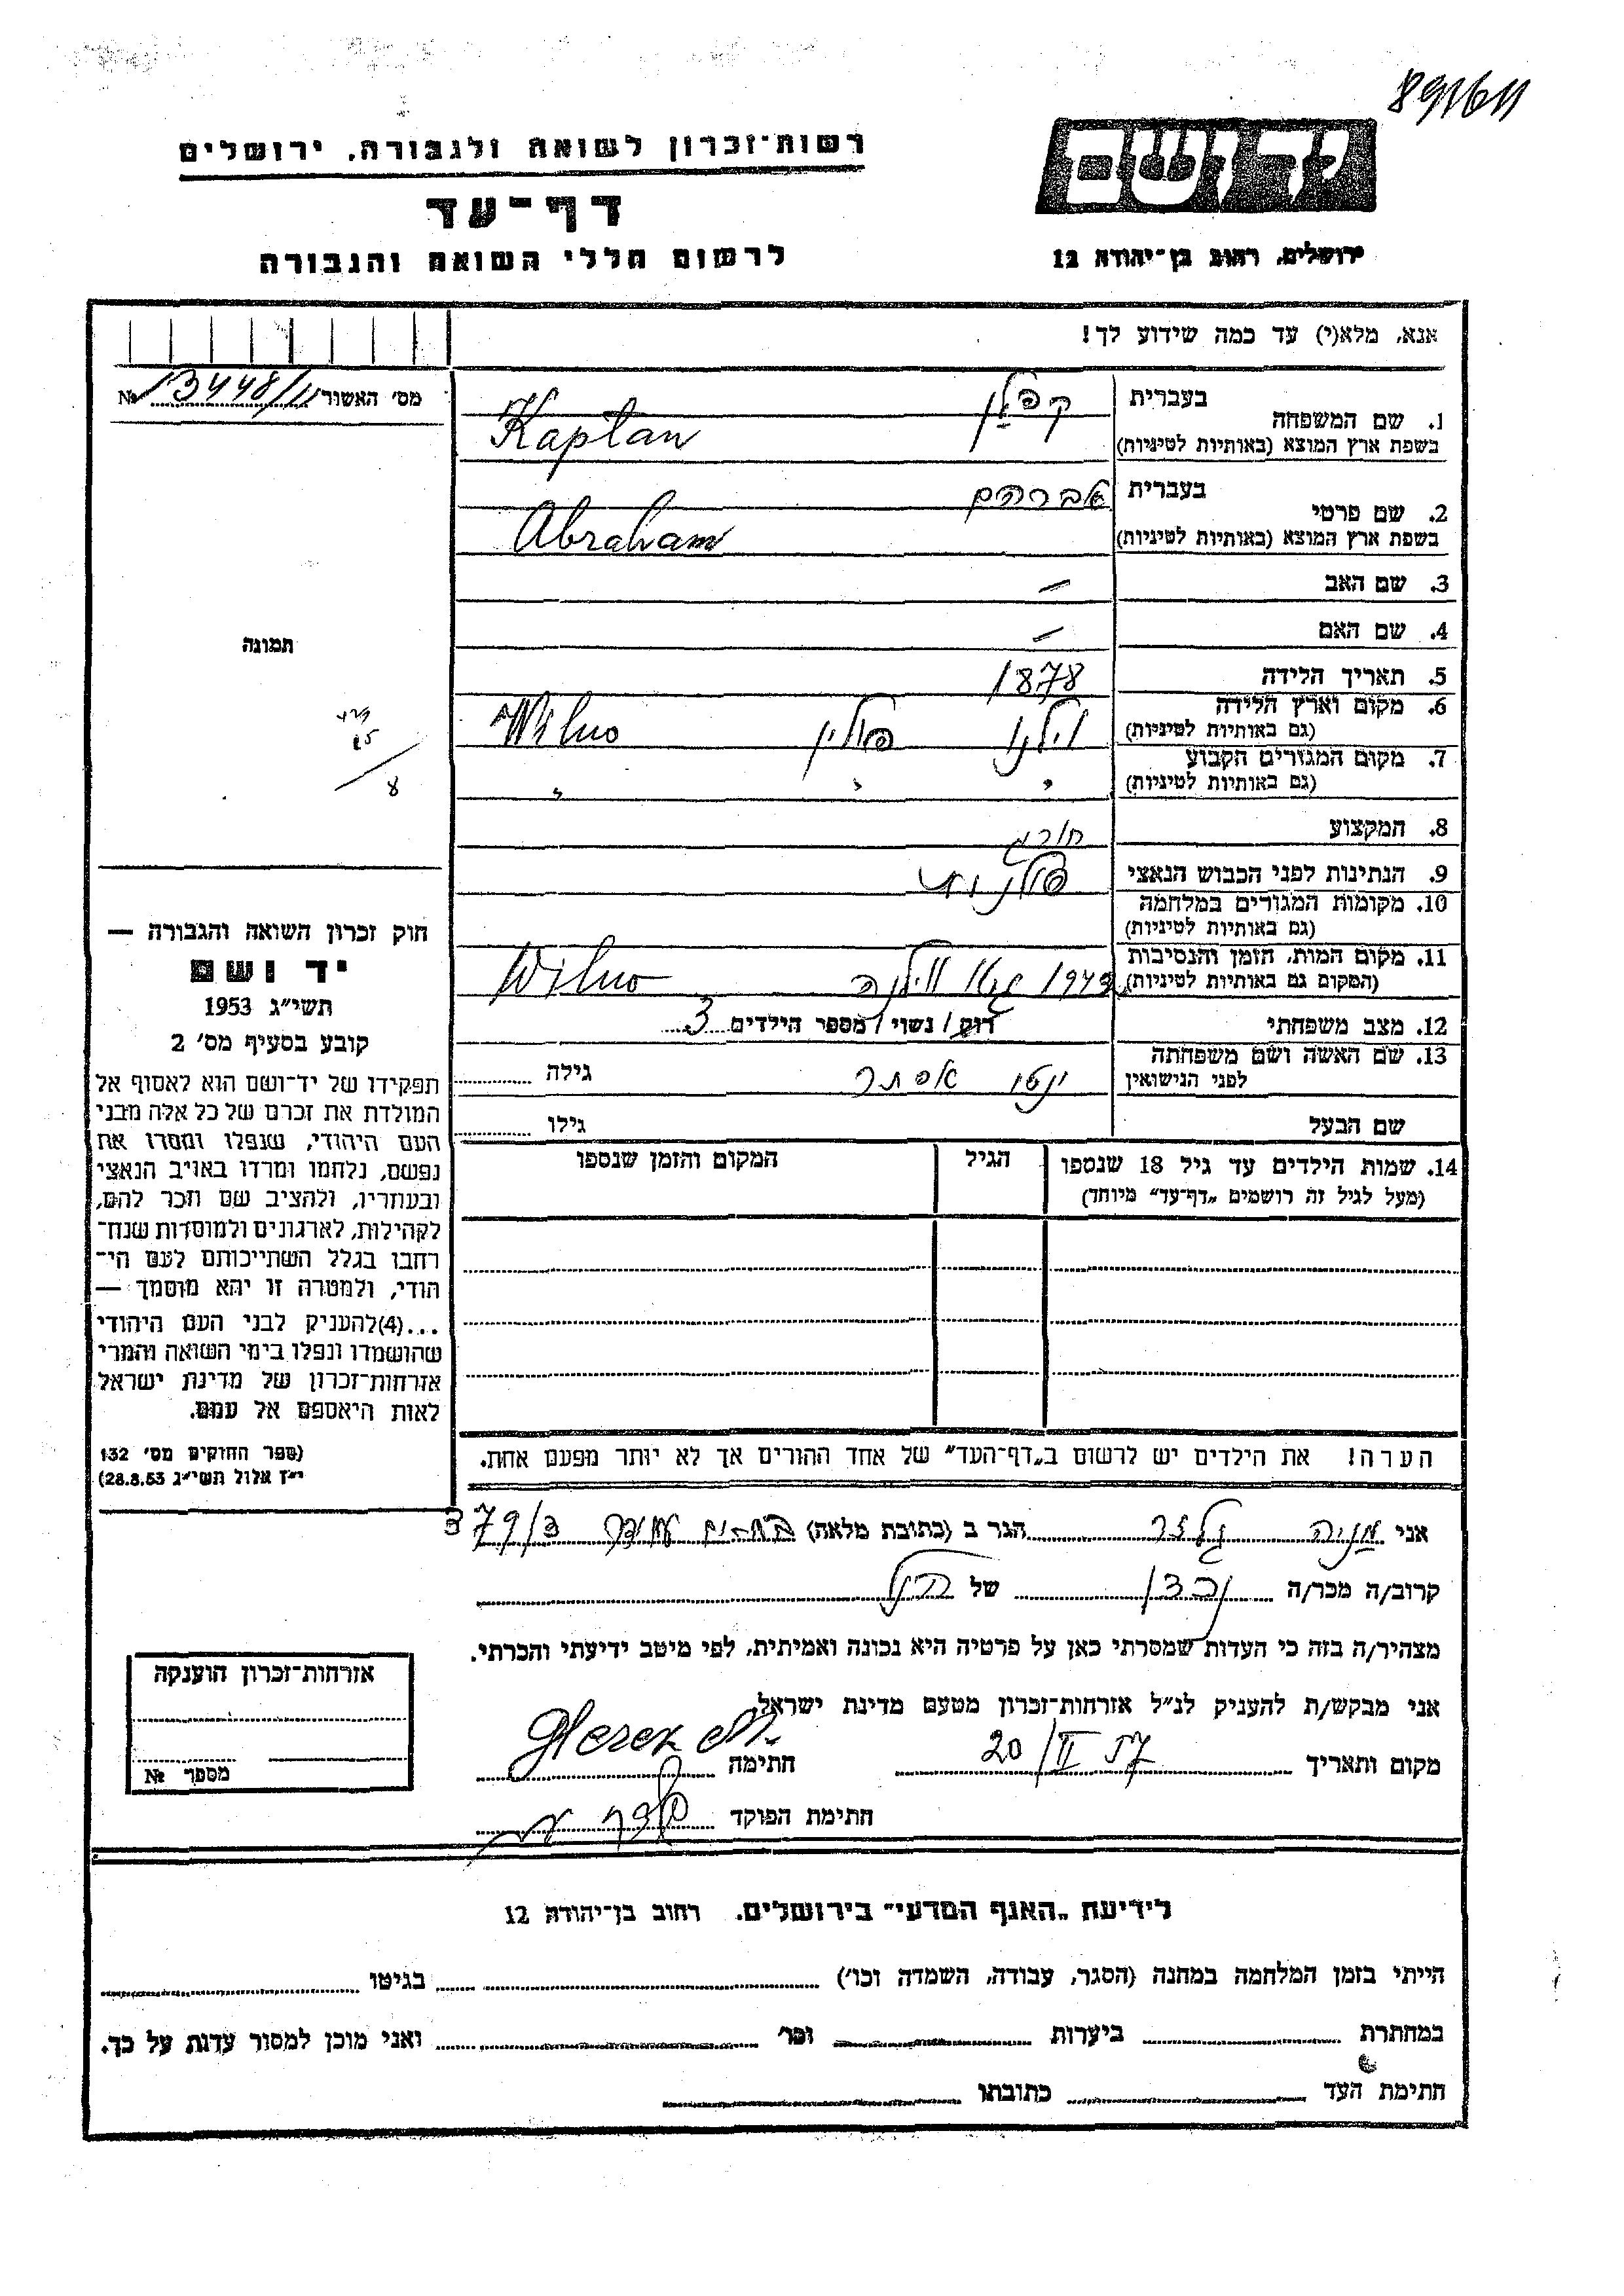 רשות־זכרון לשואה ולגבורה, ירושלים
דף־עד
לרשום חללי השואה והגבורה
יד ושם
ירושלים, רחוב בן־יהודה 12
אנא, מלא(י) עד כמה שידוע לך!
מס׳ האשור № 13448/11
תמונה
1. שם המשפחה בעברית קפלן
בשפת ארץ המוצא (באותיות לטיניות) Kaplan
2. שם פרטי בעברית אברהם
בשפת ארץ המוצא (באותיות לטיניות) Abraham
3. שם האב —
4. שם האם —
5. תאריך הלידה 1878
6. מקום וארץ הלידה (גם באותיות לטיניות) וילנו פולין Wilno
7. מקום המגורים הקבוע (גם באותיות לטיניות) " " "
8. המקצוע
9. הנתינות לפני הכבוש הנאצי פולנית
10. מקומות המגורים במלחמה (גם באותיות לטיניות)
11. מקום המות, הזמן והנסיבות (המקום גם באותיות לטיניות) 1943 גטו וילנה Wilno
12. מצב משפחתי רוק / נשוי / מספר הילדים 3
13. שם האשה ושם משפחתה לפני הנישואין אסתר גילה
שם הבעל גילו
14. שמות הילדים עד גיל 18 שנספו (מעל לגיל זה רושמים „דף־עד״ מיוחד) הגיל המקום והזמן שנספו
הערה! את הילדים יש לרשום ב„דף־העד״ של אחד ההורים אך לא יותר מפעם אחת.
חוק זכרון השואה והגבורה —
יד ושם
תשי״ג 1953
קובע בסעיף מס׳ 2
תפקידו של יד־ושם הוא לאסוף אל
המולדת את זכרם של כל אלה מבני
העם היהודי, שנפלו ומסרו את
נפשם, נלחמו ומרדו באויב הנאצי
ובעוזריו, ולהציב שם וזכר להם,
לקהילות, לארגונים ולמוסדות שנח־
רבו בגלל השתייכותם לעם הי־
הודי, ולמטרה זו יהא מוסמך —
...(4) להעניק לבני העם היהודי
שהושמדו ונפלו בימי השואה והמרי
אזרחות־זכרון של מדינת ישראל
לאות היאספם אל עמם.
(ספר החוקים מס׳ 132
י״ז אלול תשי״ג 28.8.53)
אני מניה גלזר הגר ב (כתובת מלאה) 379/3
קרוב/ה מכר/ה של
מצהיר/ה בזה כי העדות שמסרתי כאן על פרטיה היא נכונה ואמיתית, לפי מיטב ידיעתי והכרתי.
אני מבקש/ת להעניק לנ״ל אזרחות־זכרון מטעם מדינת ישראל.
מקום ותאריך 20/II 57 חתימה
חתימת הפוקד
אזרחות־זכרון הוענקה
מספר №
לידיעת „האגף המדעי״ בירושלים, רחוב בן־יהודה 12
הייתי בזמן המלחמה במחנה (הסגר, עבודה, השמדה וכו׳) בגיטו
במחתרת ביערות וכו׳ ואני מוכן למסור עדות על כך.
חתימת העד כתובתו